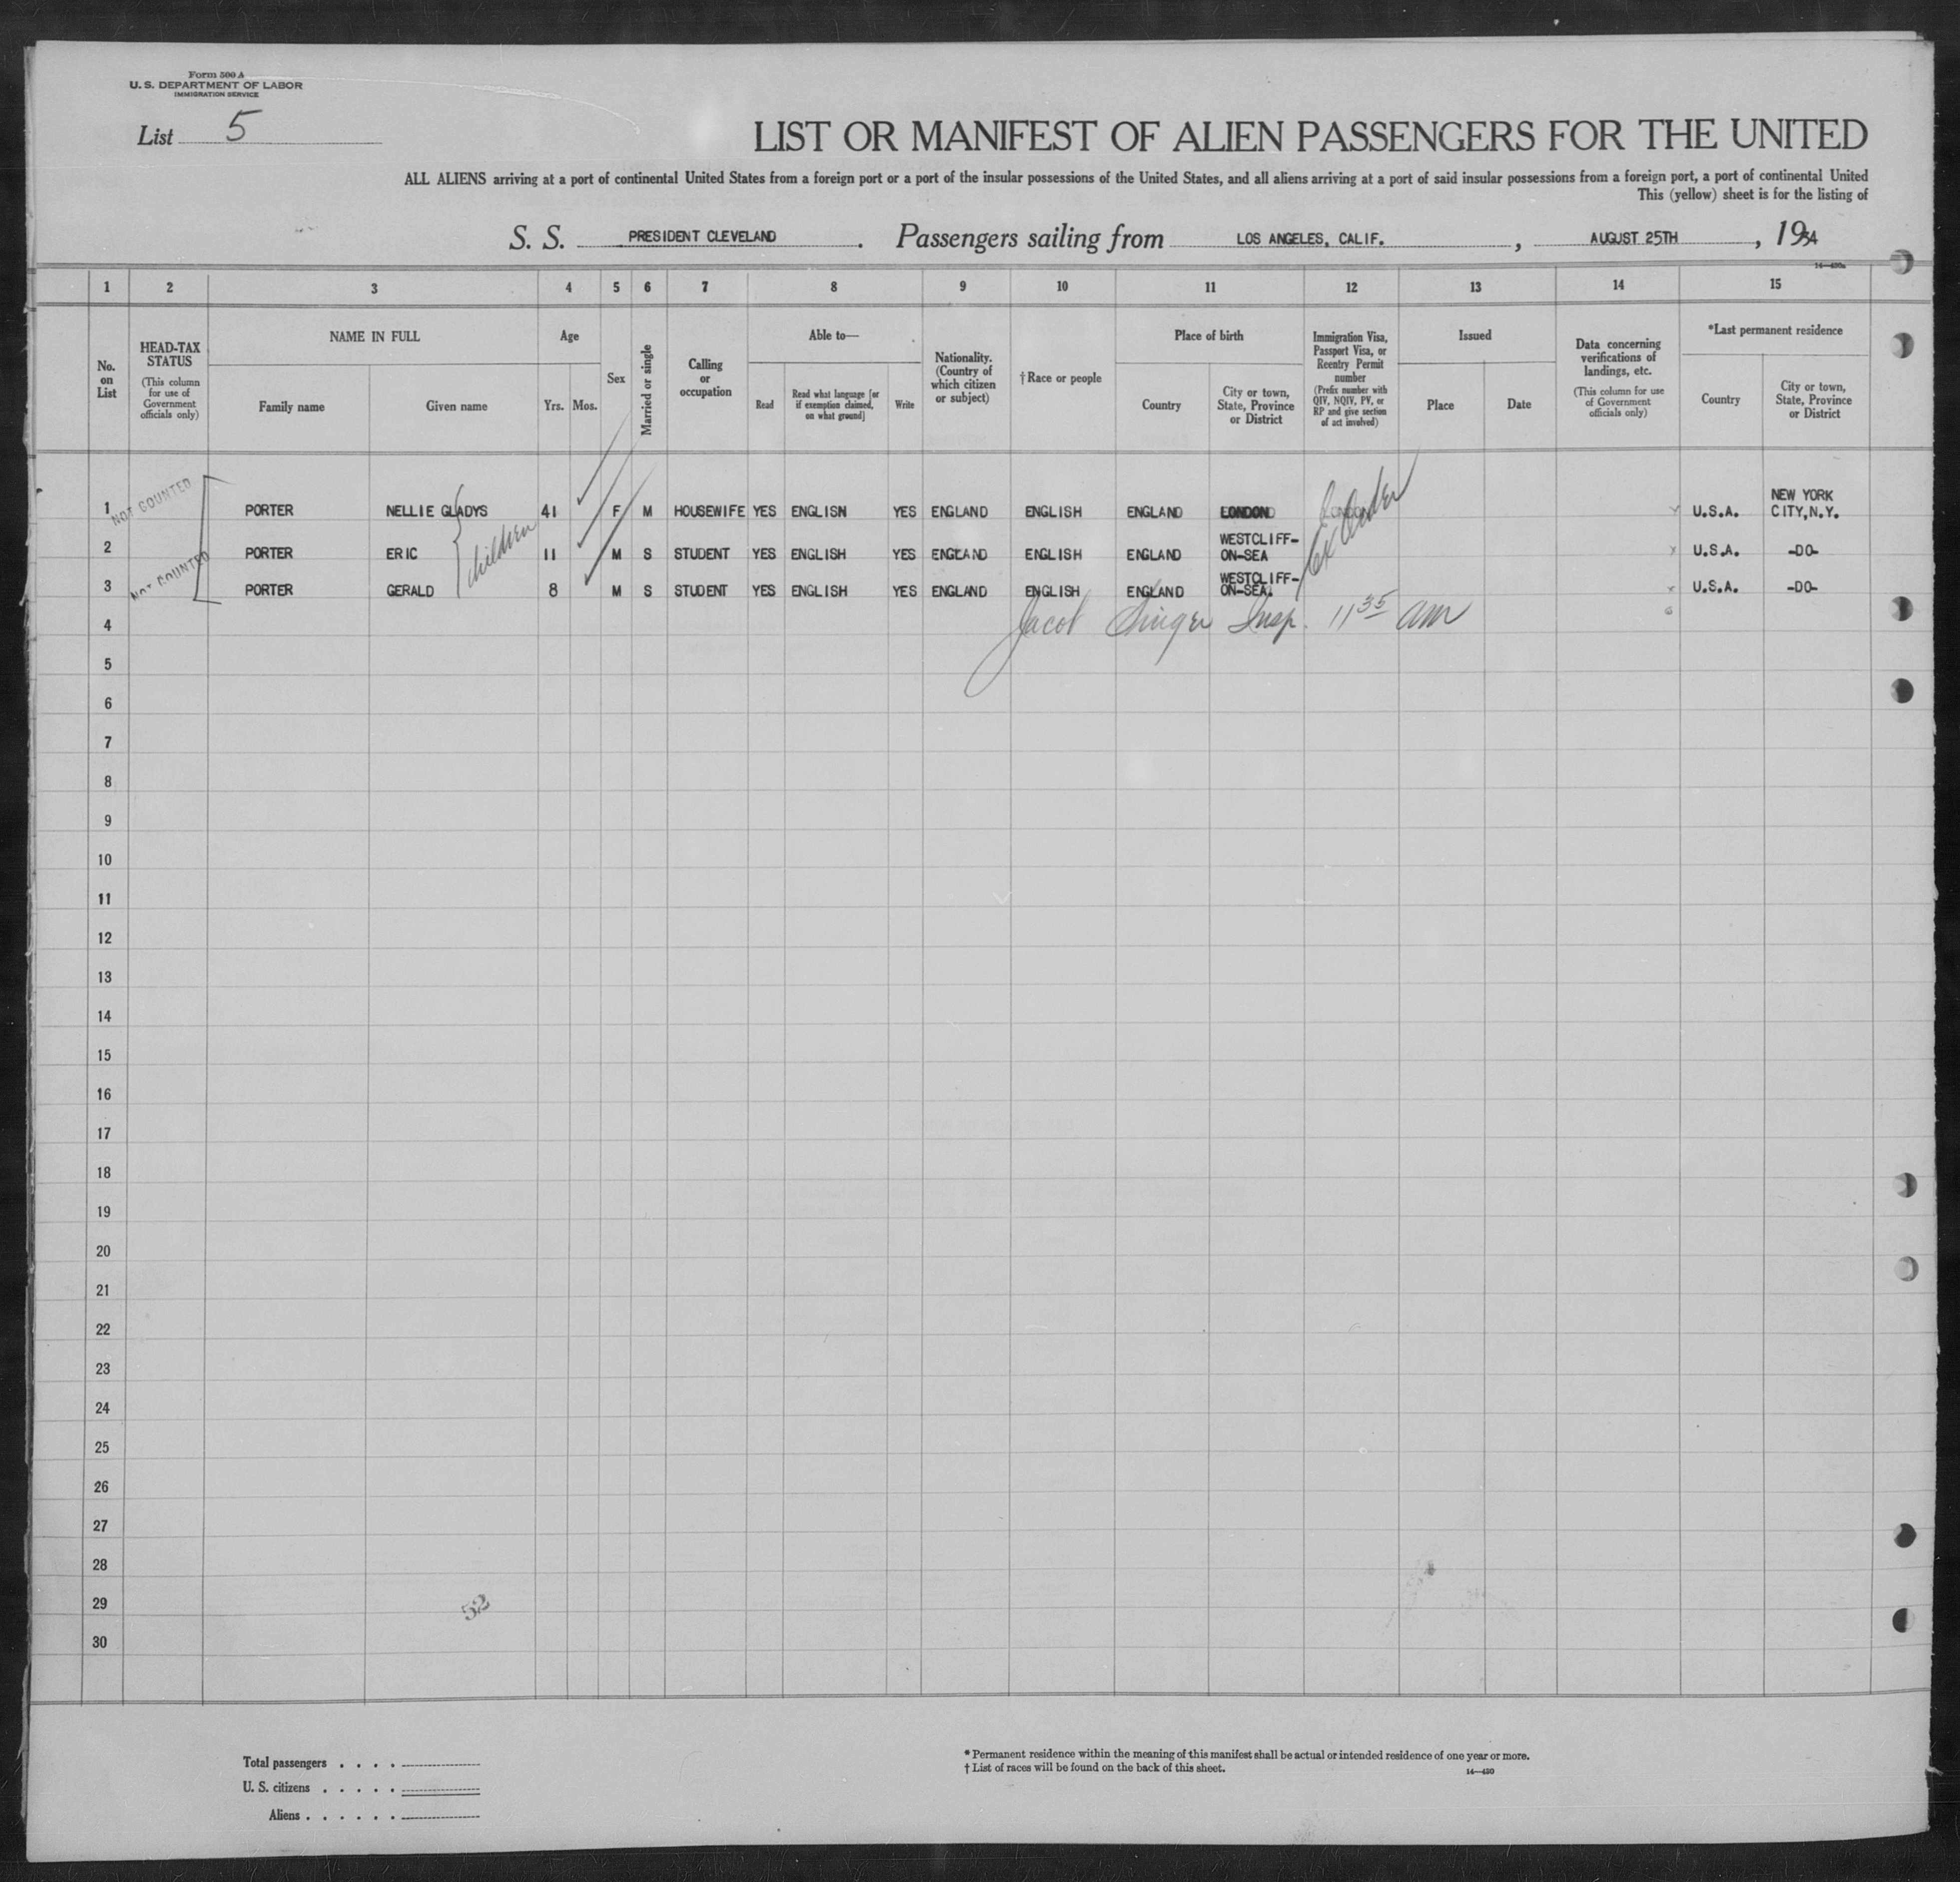 Form 500 A
U. S. DEPARTMENT OF LABOR
IMMIGRATION SERVICE
List 5
LIST OR MANIFEST OF ALIEN PASSENGERS FOR THE UNITED
ALL ALIENS arriving at a port of continental United States from a foreign port or a port of the insular possessions of the United States, and all aliens arriving at a port of said insular possessions from a foreign port, a port of continental United
This (yellow) sheet is for the listing of
S. S. PRESIDENT CLEVELAND. Passengers sailing from LOS ANGELES, CALIF., AUGUST 25TH, 1934
1 2 3 4 5 6 7 8 9 10 11 12 13 14 15
No. on List
HEAD-TAX STATUS (This column for use of Government officials only)
NAME IN FULL
Family name Given name
Age
Yrs. Mos.
Sex
Married or single
Calling or occupation
Able to—
Read
Read what language [or if exemption claimed, on what ground]
Write
Nationality. (Country of which citizen or subject)
†Race or people
Place of birth
Country
City or town, State, Province or District
Immigration Visa, Passport Visa, or Reentry Permit number (Prefix number with QIV, NQIV, PV, or RP and give section of act involved)
Issued
Place Date
Data concerning verifications of landings, etc. (This column for use of Government officials only)
*Last permanent residence
Country
City or town, State, Province or District
NOT COUNTED
1 PORTER NELLIE GLADYS 41 F M HOUSEWIFE YES ENGLISN YES ENGLAND ENGLISH ENGLAND LONDON U.S.A. NEW YORK CITY,N.Y.
2 PORTER ERIC 11 M S STUDENT YES ENGLISH YES ENGLAND ENGLISH ENGLAND WESTCLIFF-ON-SEA U.S.A. -DO-
NOT COUNTED
3 PORTER GERALD 8 M S STUDENT YES ENGLISH YES ENGLAND ENGLISH ENGLAND WESTCLIFF-ON-SEA. U.S.A. -DO-
children
Jacob Singer Insp. 11 35 am
4
5
6
7
8
9
10
11
12
13
14
15
16
17
18
19
20
21
22
23
24
25
26
27
28
29
30
52
Total passengers . . . .
U. S. citizens . . . . .
Aliens . . . . . .
* Permanent residence within the meaning of this manifest shall be actual or intended residence of one year or more.
† List of races will be found on the back of this sheet.
14—430